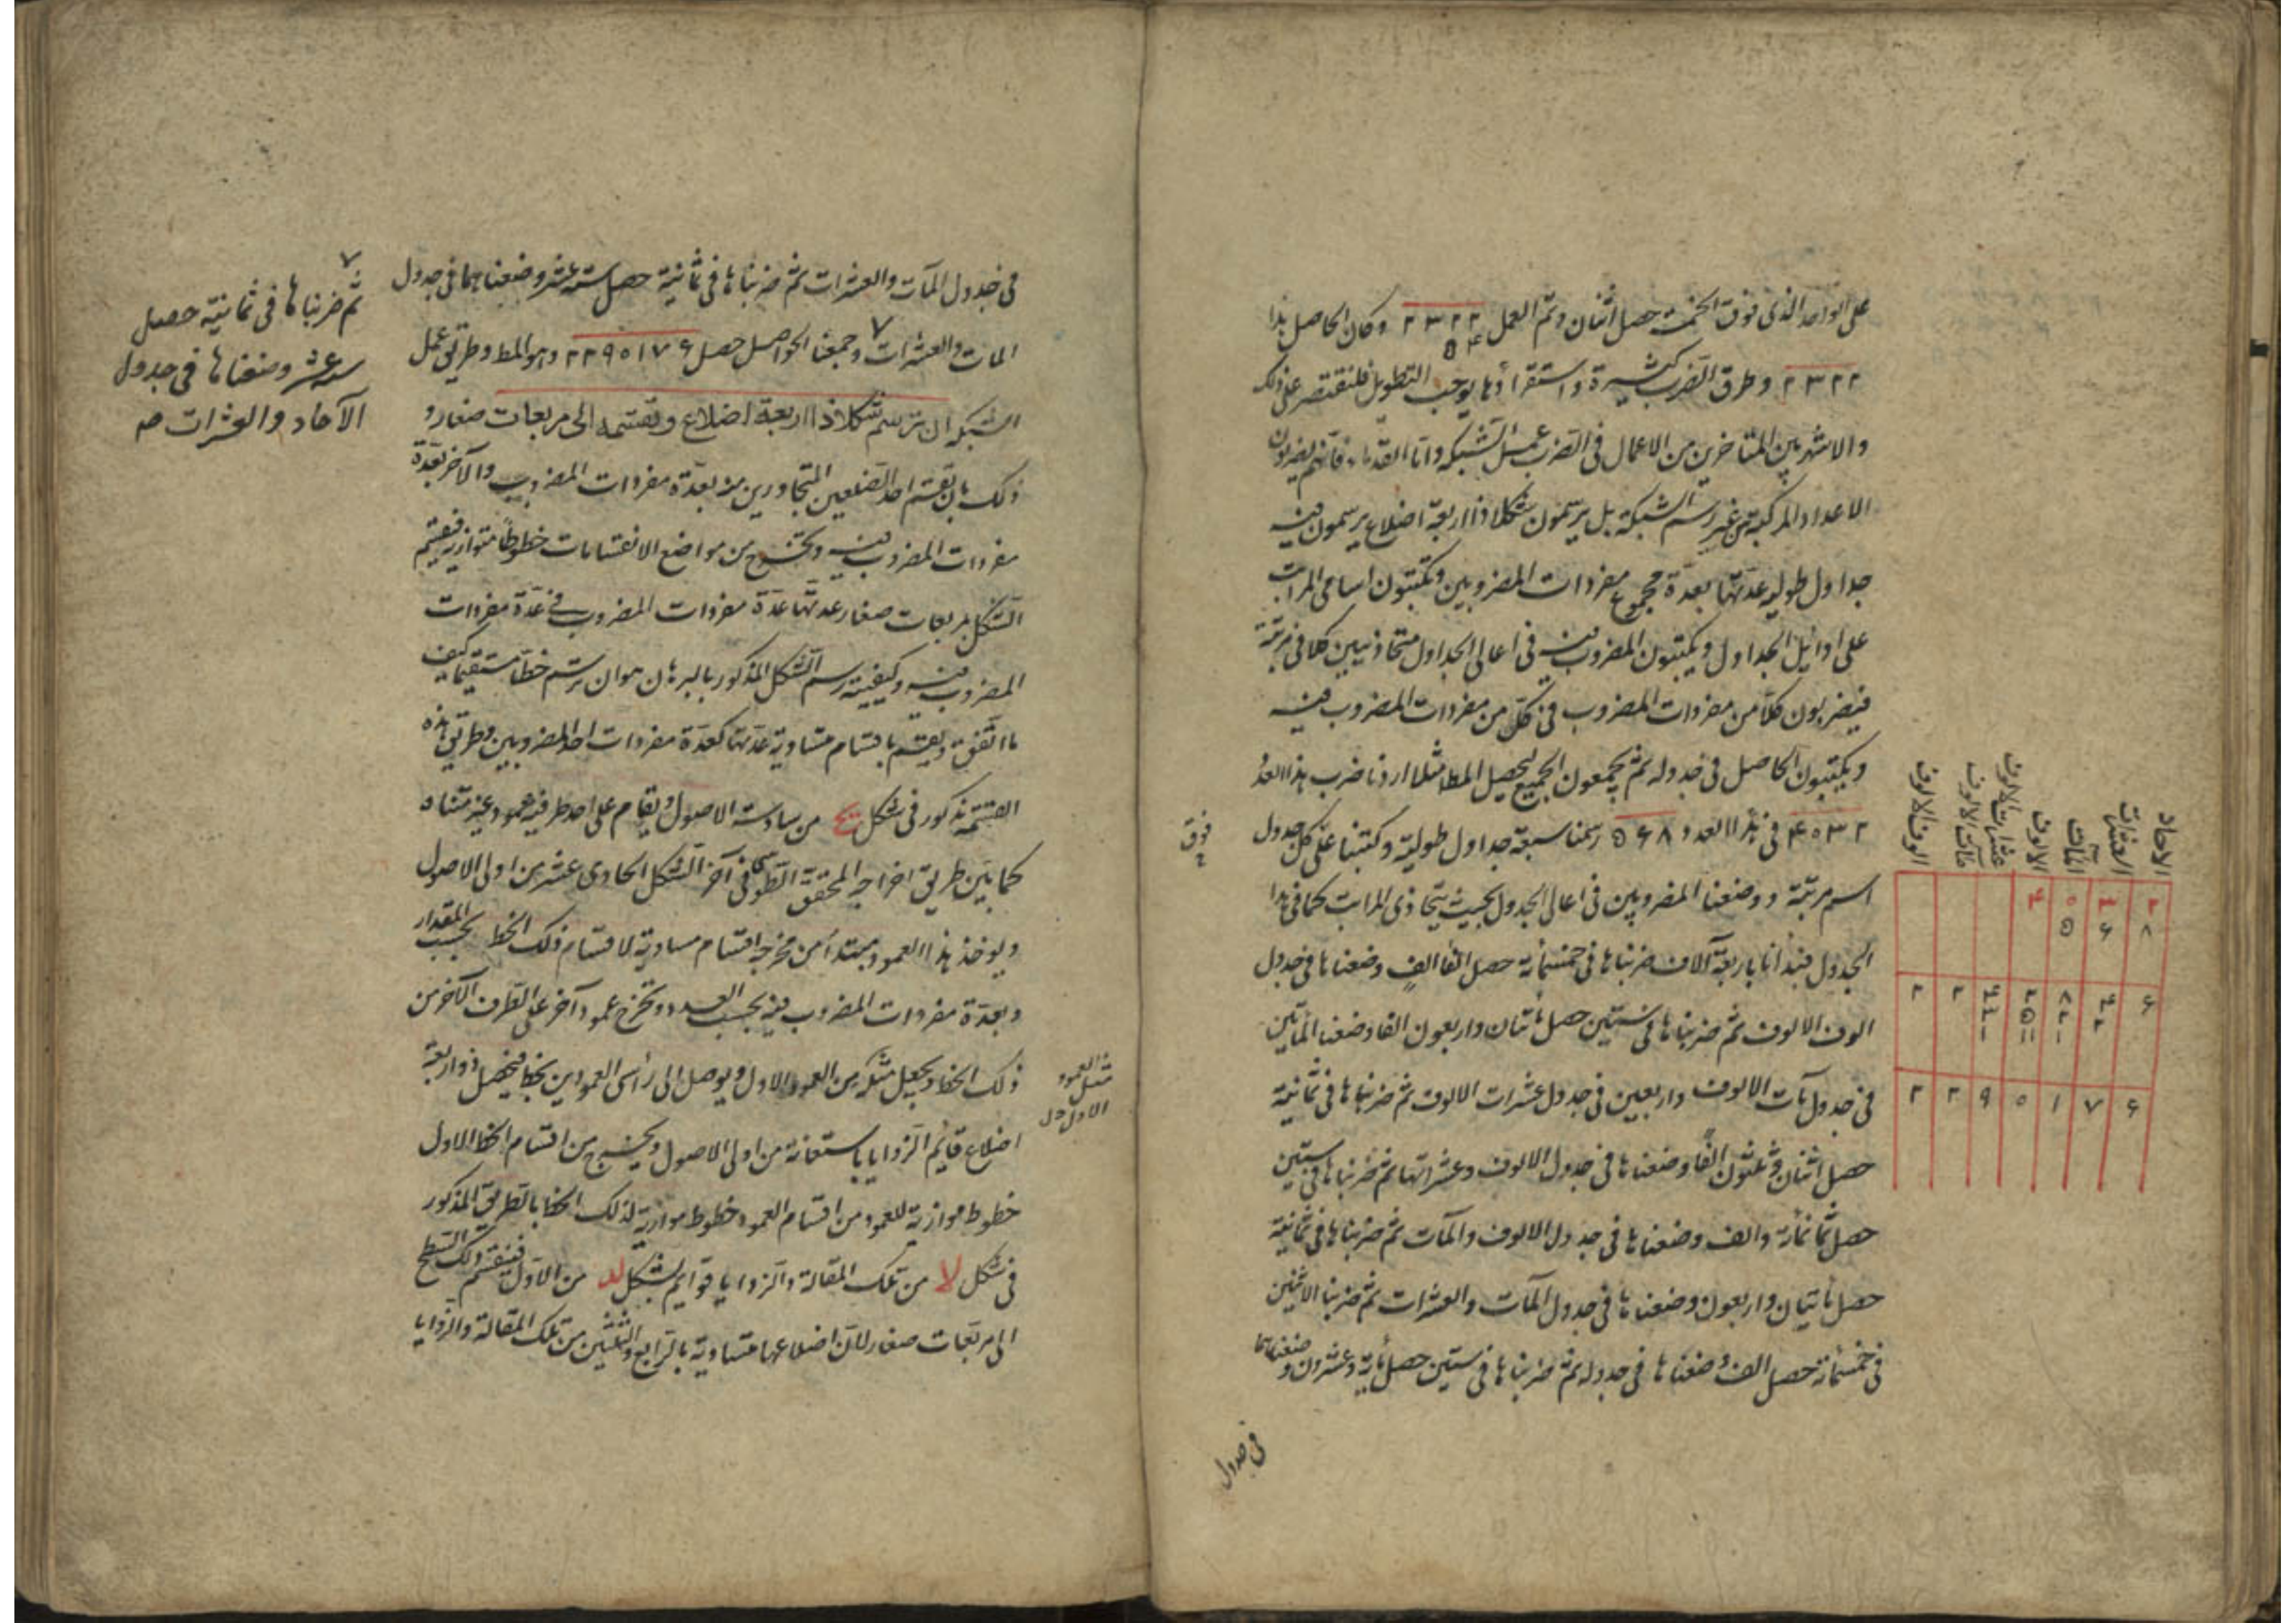 على الواحد الذى فوق الخمسة حصل اثنان وتم العمل ٢٣٢٢ وكان الحاصل هذا
٥٤
٢٣٢٢ وطرق الضرب كثيرة واستقراؤها يوجب التطويل فلنقتصر على ذلك
والاشهر بين المتأخرين من الاعمال فى الضرب عمل الشبكه واما القدماء فانهم يضربون
الاعداد المركبة من غير رسم الشبكة بل يرسمون شكلا ذا اربعة اضلاع يرسمون فيه
جداول طوليه عدتها بعدة مجموع مفردات المضروبين ويكتبون اسامى المراتب
على اوائل الجداول ويكتبون المضروب فيه فى اعالى الجداول متحاذيين كلا فى مرتبته
فيضربون كلا من مفردات المضروب فى كل من مفردات المضروب فيه
ويكتبون الحاصل فى جدوله ثم يجمعون الجميع ليحصل المط مثلا اردنا ضرب هذا العدد
٤٥٣٢ فى هذا العدد ٥٦٨ رسمنا سبعة جداول طولية وكتبنا على كل جدول
فوق
اسم مرتبة ووضعنا المضروبين فى اعالى الجدول بحيث يتحاذى المراتب كما فى هذا
الجدول فبدأنا باربعة آلاف ضربناها فى خمسمأئة حصل الفا الف وضعناها فى جدول
الوف الالوف ثم ضربناها فى ستين حصل مأتان واربعون الفا وضعنا المأتين
فى جدول مآت الالوف واربعين فى جدول عشرات الالوف ثم ضربناها فى ثمانية
حصل اثنان وثلثون الفا وضعناها فى جدول الالوف وعشراتها ثم ضربناها فى ستين
حصل ثمانمأئة والف وضعناها فى جدول الالوف والمآت ثم ضربناها فى ثمانية
حصل مأتيان واربعون وضعناها فى جدول المآت والعشرات ثم ضربنا الاثنين
فى خمسمأئة حصل الف وضعناها فى جدوله ثم ضربناها فى ستين حصل مأية وعشرون وضعناها
فى جدول
الآحاد
العشرات
المآت
الالوف
عشرات الالوف
مآت الالوف
الوف الالوف
٤ ٥ ٣ ٢
٥ ٦ ٨
٢ ٢ ٩ ٥ ١ ٧ ٦
فى جدول المآت والعشرات ثم ضربناها فى ثمانية حصل ستة عشر وضعناهما فى جدول
المات والعشرات ٧ وجمعنا الحواصل حصل ٢٢٩٥١٧٦ وهو المط وطريق عمل
الشبكه ان ترسم شكلا ذا اربعة اضلاع وتقسمه الى مربعات صغار و
ذلك بان تقسم احد الضلعين المتجاورين منه بعدة مفردات المضروب والآخر بعدة
مفردات المضروب فيه وتخرج من مواضع الانقسامات خطوطا متوازية فينقسم
الشكل بمربعات صغار عدتها عدة مفردات المضروب فى عدة مفردات
المضروب فيه وكيفية رسم الشكل المذكور بالبرهان هو ان ترسم خطا مستقيما كيف
ما اتفق ويقسم باقسام متساوية عدتها كعدة مفردات احد المضروبين وطريق هذه
القسمة مذكور فى شكل يح من سادسة الاصول ويقام على احد طرفيه عمود غير متناه
كما بين طريق اخراجه المحقق الطوسى فى آخر الشكل الحادى عشر من اولى الاصول
ويوخذ هذا العمود مبتدأ من مخرجه اقسام مساوية لاقسام ذلك الخط بحسب المقدار
وبعدة مفردات المضروب فيه بحسب العدد وتخرج عمودا آخر على الطرف الآخر من
ذلك الخط ويجعل مثله من العمود الاول ويوصل الى رأسى العمودين بخط فيحصل ذو اربعة
اضلاع قائم الزوايا باستعانة من اولى الاصول ويخرج من اقسام الخط الاول
خطوط موازية للعمود من اقسام العمود خطوط موازية لذلك الخط بالطريق المذكور
فى شكل لا من تلك المقالة والزوايا قوائم بشكل لد من الاول فينقسم ذلك السطح
الى مربعات صغار لان اضلاعها متساوية بالرابع والثلثين من تلك المقالة والزوايا
٧
ثم ضربناها فى ثمانية حصل
ستة عشر وضعناها فى جدول
الآحاد والعشرات صه
مثل العمود
الاول